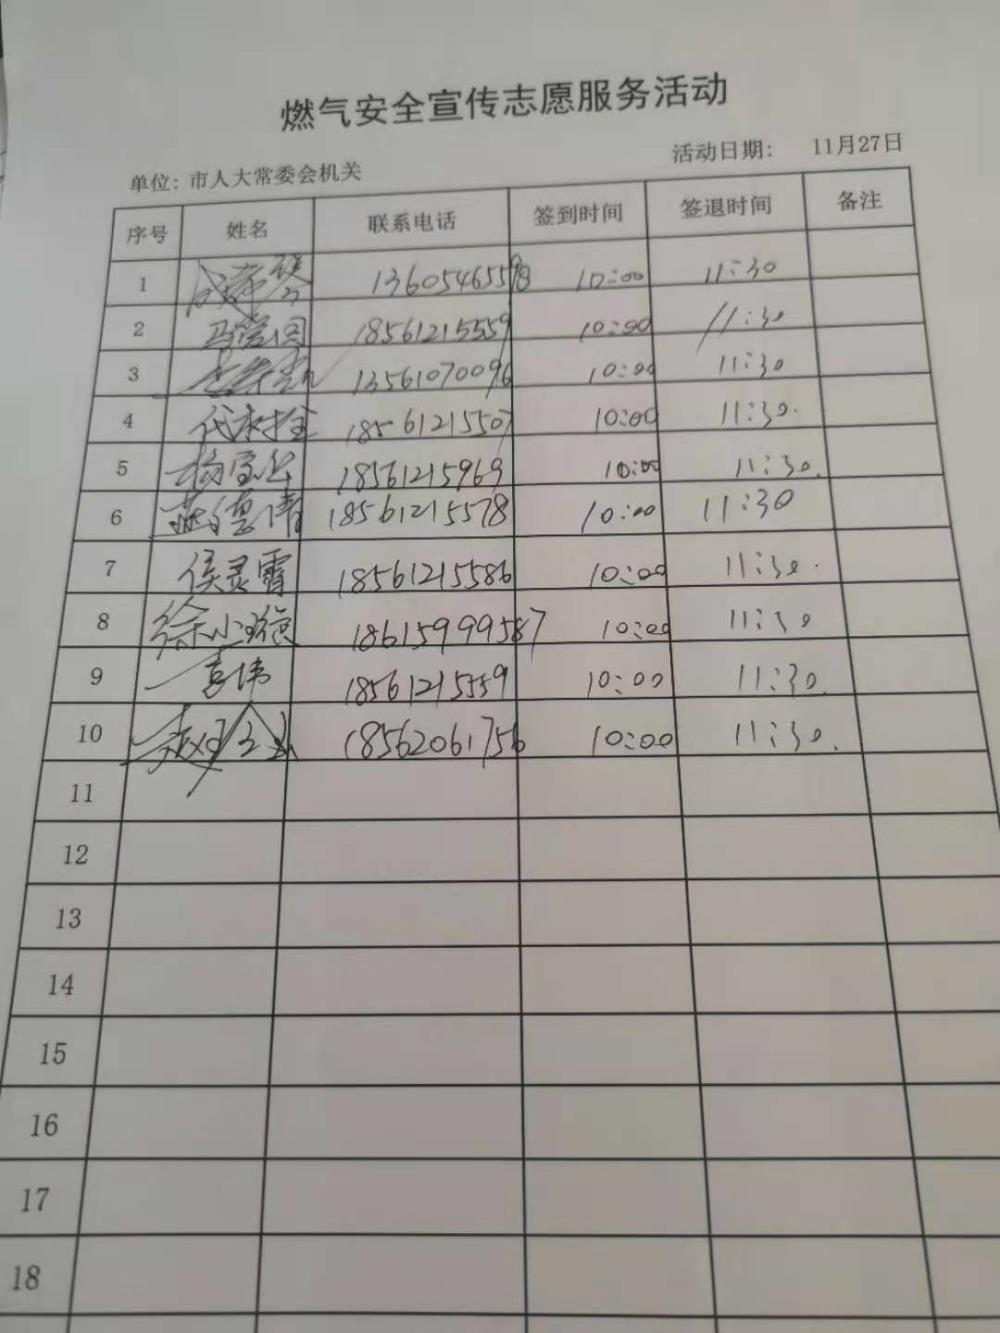 燃气安全宣传志愿服务活动
单位：市人大常委会机关 活动日期： 11月27日
序号 姓名 联系电话 签到时间 签退时间 备注
1 13605465598 10:00 11:30
2 18561215559 10:00 11:30
3 13561070096 10:00 11:30
4 代永拴 18561215507 10:00 11:30.
5 18561215969 10:00 11:30.
6 18561215578 10:00 11:30
7 侯灵霄 18561215586 10:00 11:30.
8 徐小璇 18615999587 10:00 11:30
9 袁伟 18561215559 10:00 11:30.
10 18562061756 10:00 11:30.
11
12
13
14
15
16
17
18